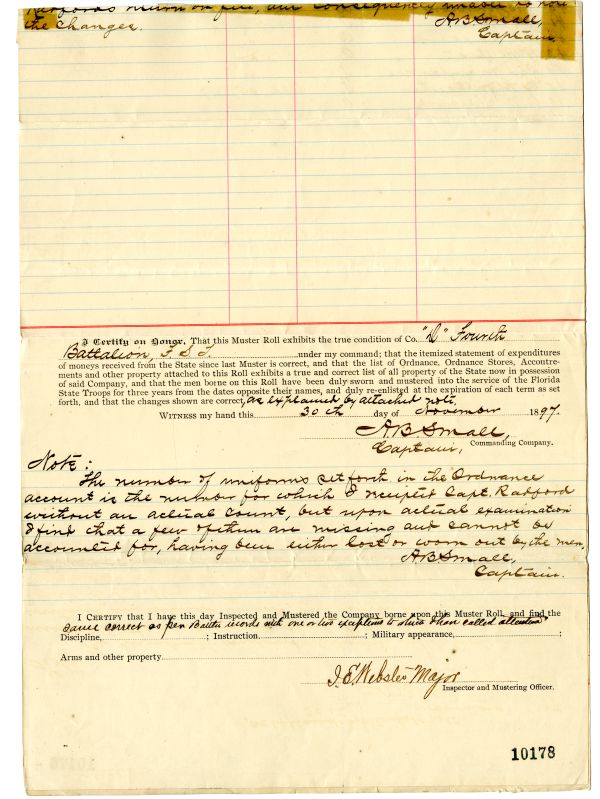 Radford's return on file, and consequently unable to note
the changes.
A.B. Small,
Captain
I Certify on Honor, That this Muster Roll exhibits the true condition of Co. "D" Fourth
Battalion, F. S. T. under my command; that the itemized statement of expenditures
of moneys received from the State since last Muster is correct, and that the list of Ordnance, Ordnance Stores, Accoutre-
ments and other property attached to this Roll exhibits a true and correct list of all property of the State now in possession
of said Company, and that the men borne on this Roll have been duly sworn and mustered into the service of the Florida
State Troops for three years from the dates opposite their names, and duly re-enlisted at the expiration of each term as set
forth, and that the changes shown are correct, as explained by attached note.
WITNESS my hand this 30th day of November 1897.
A.B. Small,
Captain, Commanding Company.
Note:
The number of uniforms set forth in the Ordnance
account is the number for which I receipted Capt. Radford
without an actual count, but upon actual examination
I find that a few of them are missing and cannot be
accounted for, having been either lost or worn out by the men.
A.B. Small,
Captain.
I CERTIFY that I have this day Inspected and Mustered the Company borne upon this Muster Roll, and find the
same correct as per Battn records with one or two exceptions to which I have called attention
Discipline, ; Instruction, ; Military appearance, ;
Arms and other property
J. E. Webster Major
Inspector and Mustering Officer.
10178